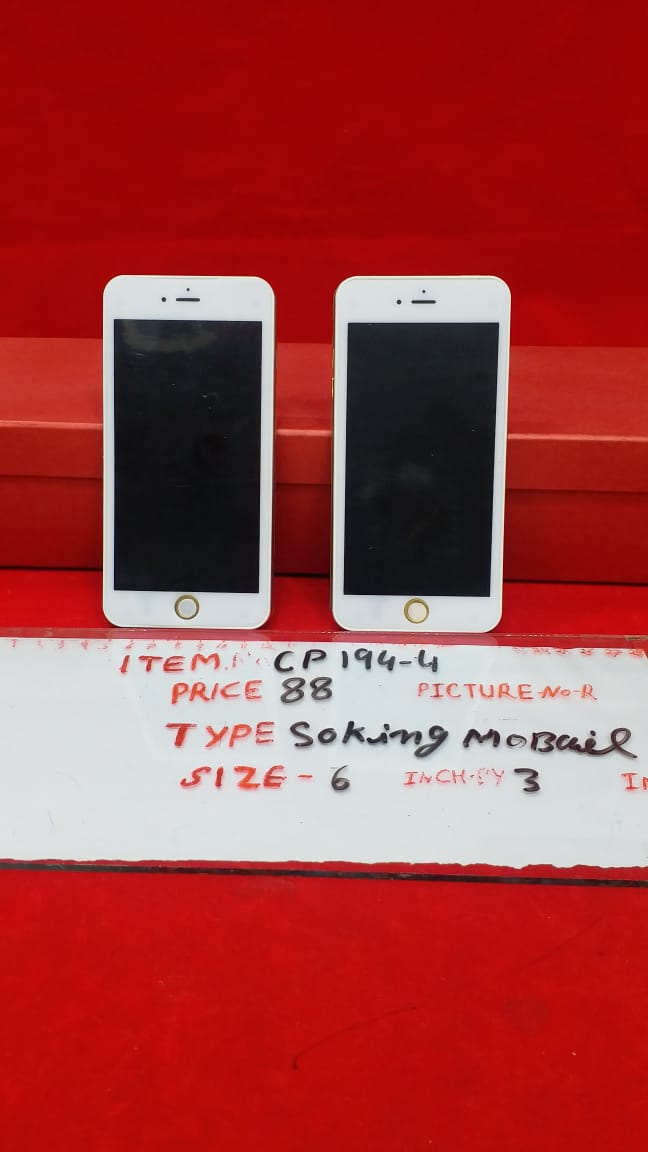 ITEM. CP 194-4
PRICE 88 PICTURE-NO-R
TYPE Soking MoBail
SIZE - 6 INCH-BY 3 IN